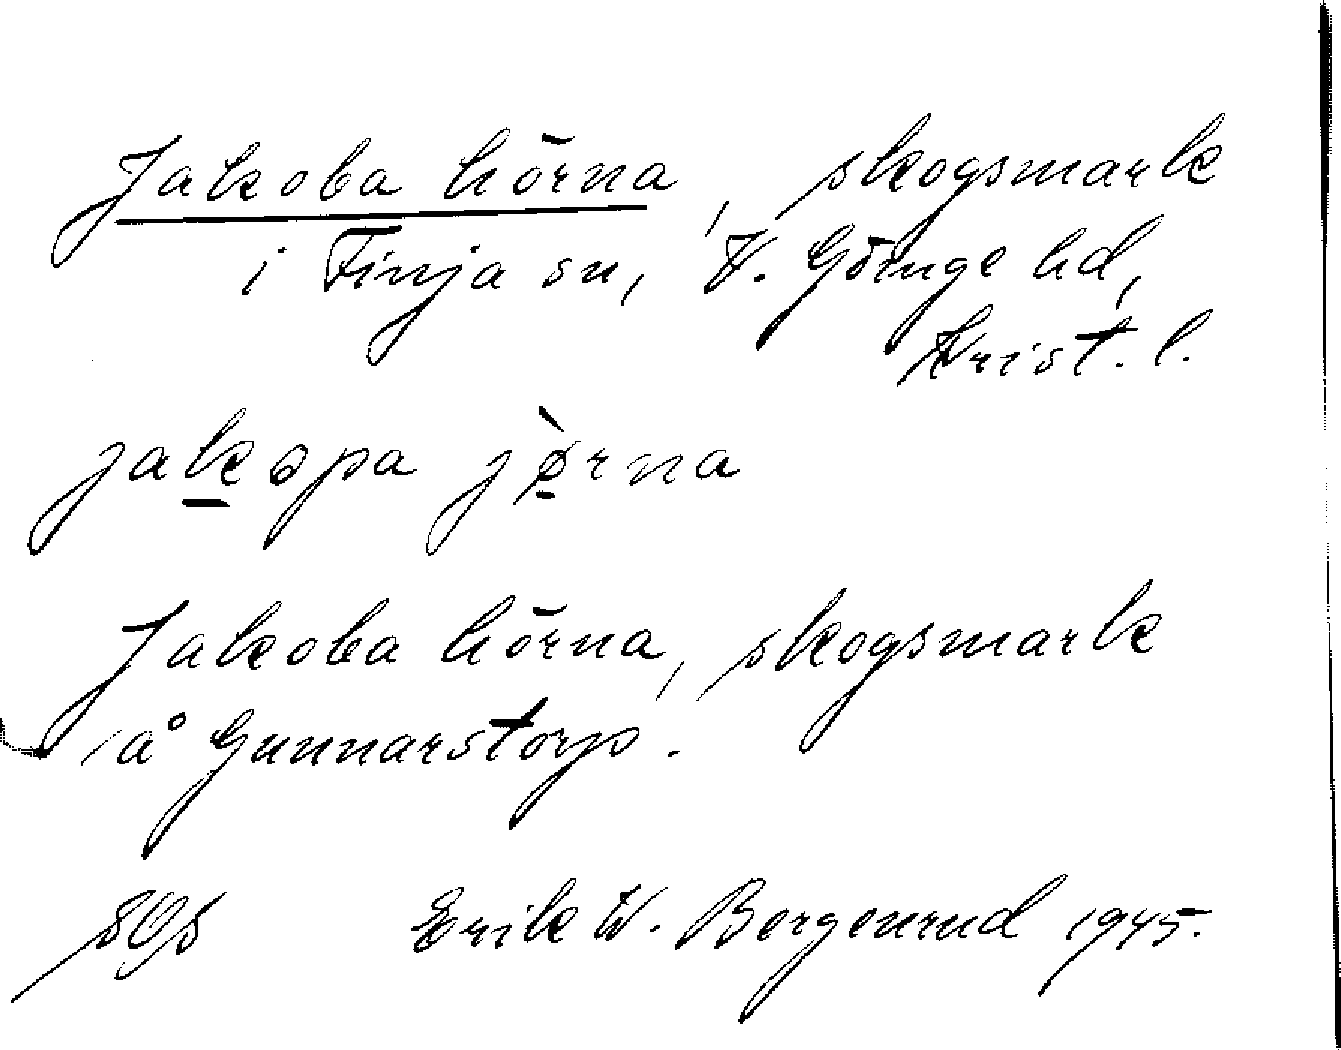 Jakoba hörna, skogsmark
i Finja sn, V. Göinge hd,
Krist. l.
jakopa jø̀rna
Jakoba hörna, skogsmark
å Gunnarstorp.
Erik W. Borgenrud 1945.